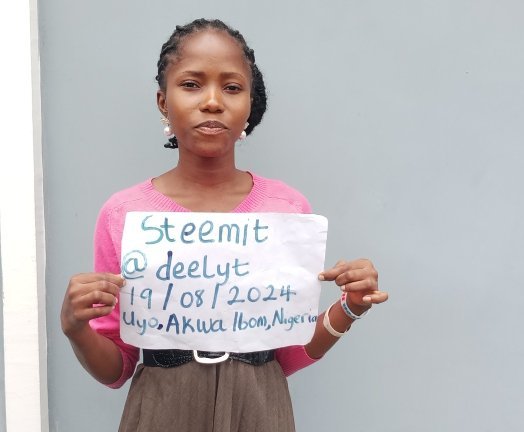 Steemit
@ deelyt
19/08/2024
Uyo, Akwa Ibom, Nigeria